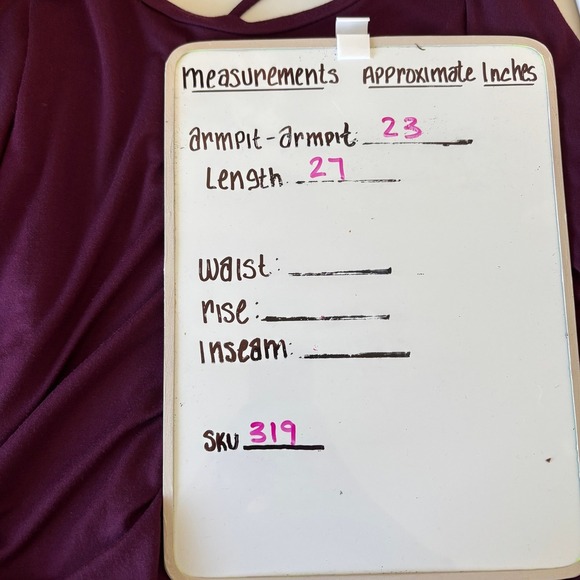 measurements Approximate Inches
armpit-armpit 23
Length 27
waist:
rise:
inseam:
SKU 319